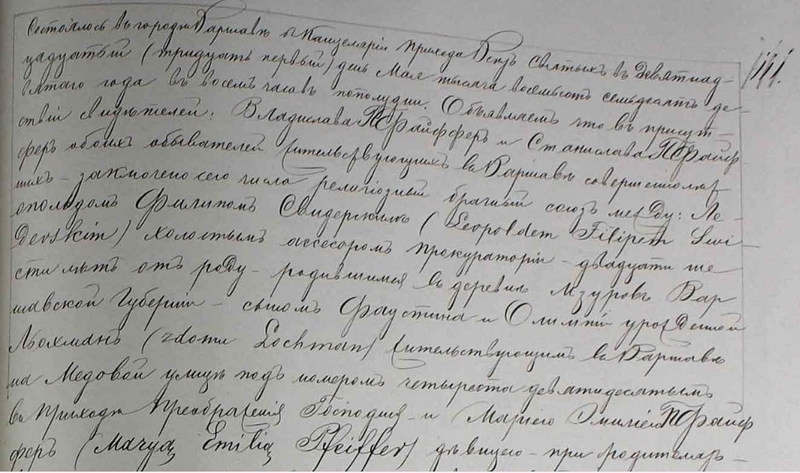 Состоялось въ городѣ Варшавѣ въ Канцеляріи прихода Всѣхъ Святыхъ въ Девятнад-
цадцатый (тридцать первый) день Мая тысяча восемьсотъ семьдесятъ де-
вятаго года въ восемь часовъ пополудни. Объявляемъ что въ присут-
ствіи свидѣтелей: Владислава Пфайфферъ и Станислава Пфайф-
феръ обоихъ обывателей жительствующихъ въ Варшавѣ совершеннолѣт-
нихъ – заключено сего числа религіозный брачный союзъ между: Ле-
опольдомъ Филипомъ Свидерскимъ (Leopoldem Filipem Swi-
derskim) холостымъ ассесоромъ прокураторіи – двадцати ше-
сти лѣтъ отъ роду – родившимся въ деревнѣ Мзуровѣ Вар-
шавской Губерніи – сыномъ Фаустина и Олимпіи урожденной
Лохманъ (z domu Lochman) жительствующимъ въ Варшавѣ
на Медовой улицѣ подъ номеромъ четыреста девятидесятымъ
въ Приходѣ Преображенія Господня – и Маріею Эмиліею Пфайф-
феръ (Maryą Emilią Pfeiffer) дѣвицею – при родителяхъ –